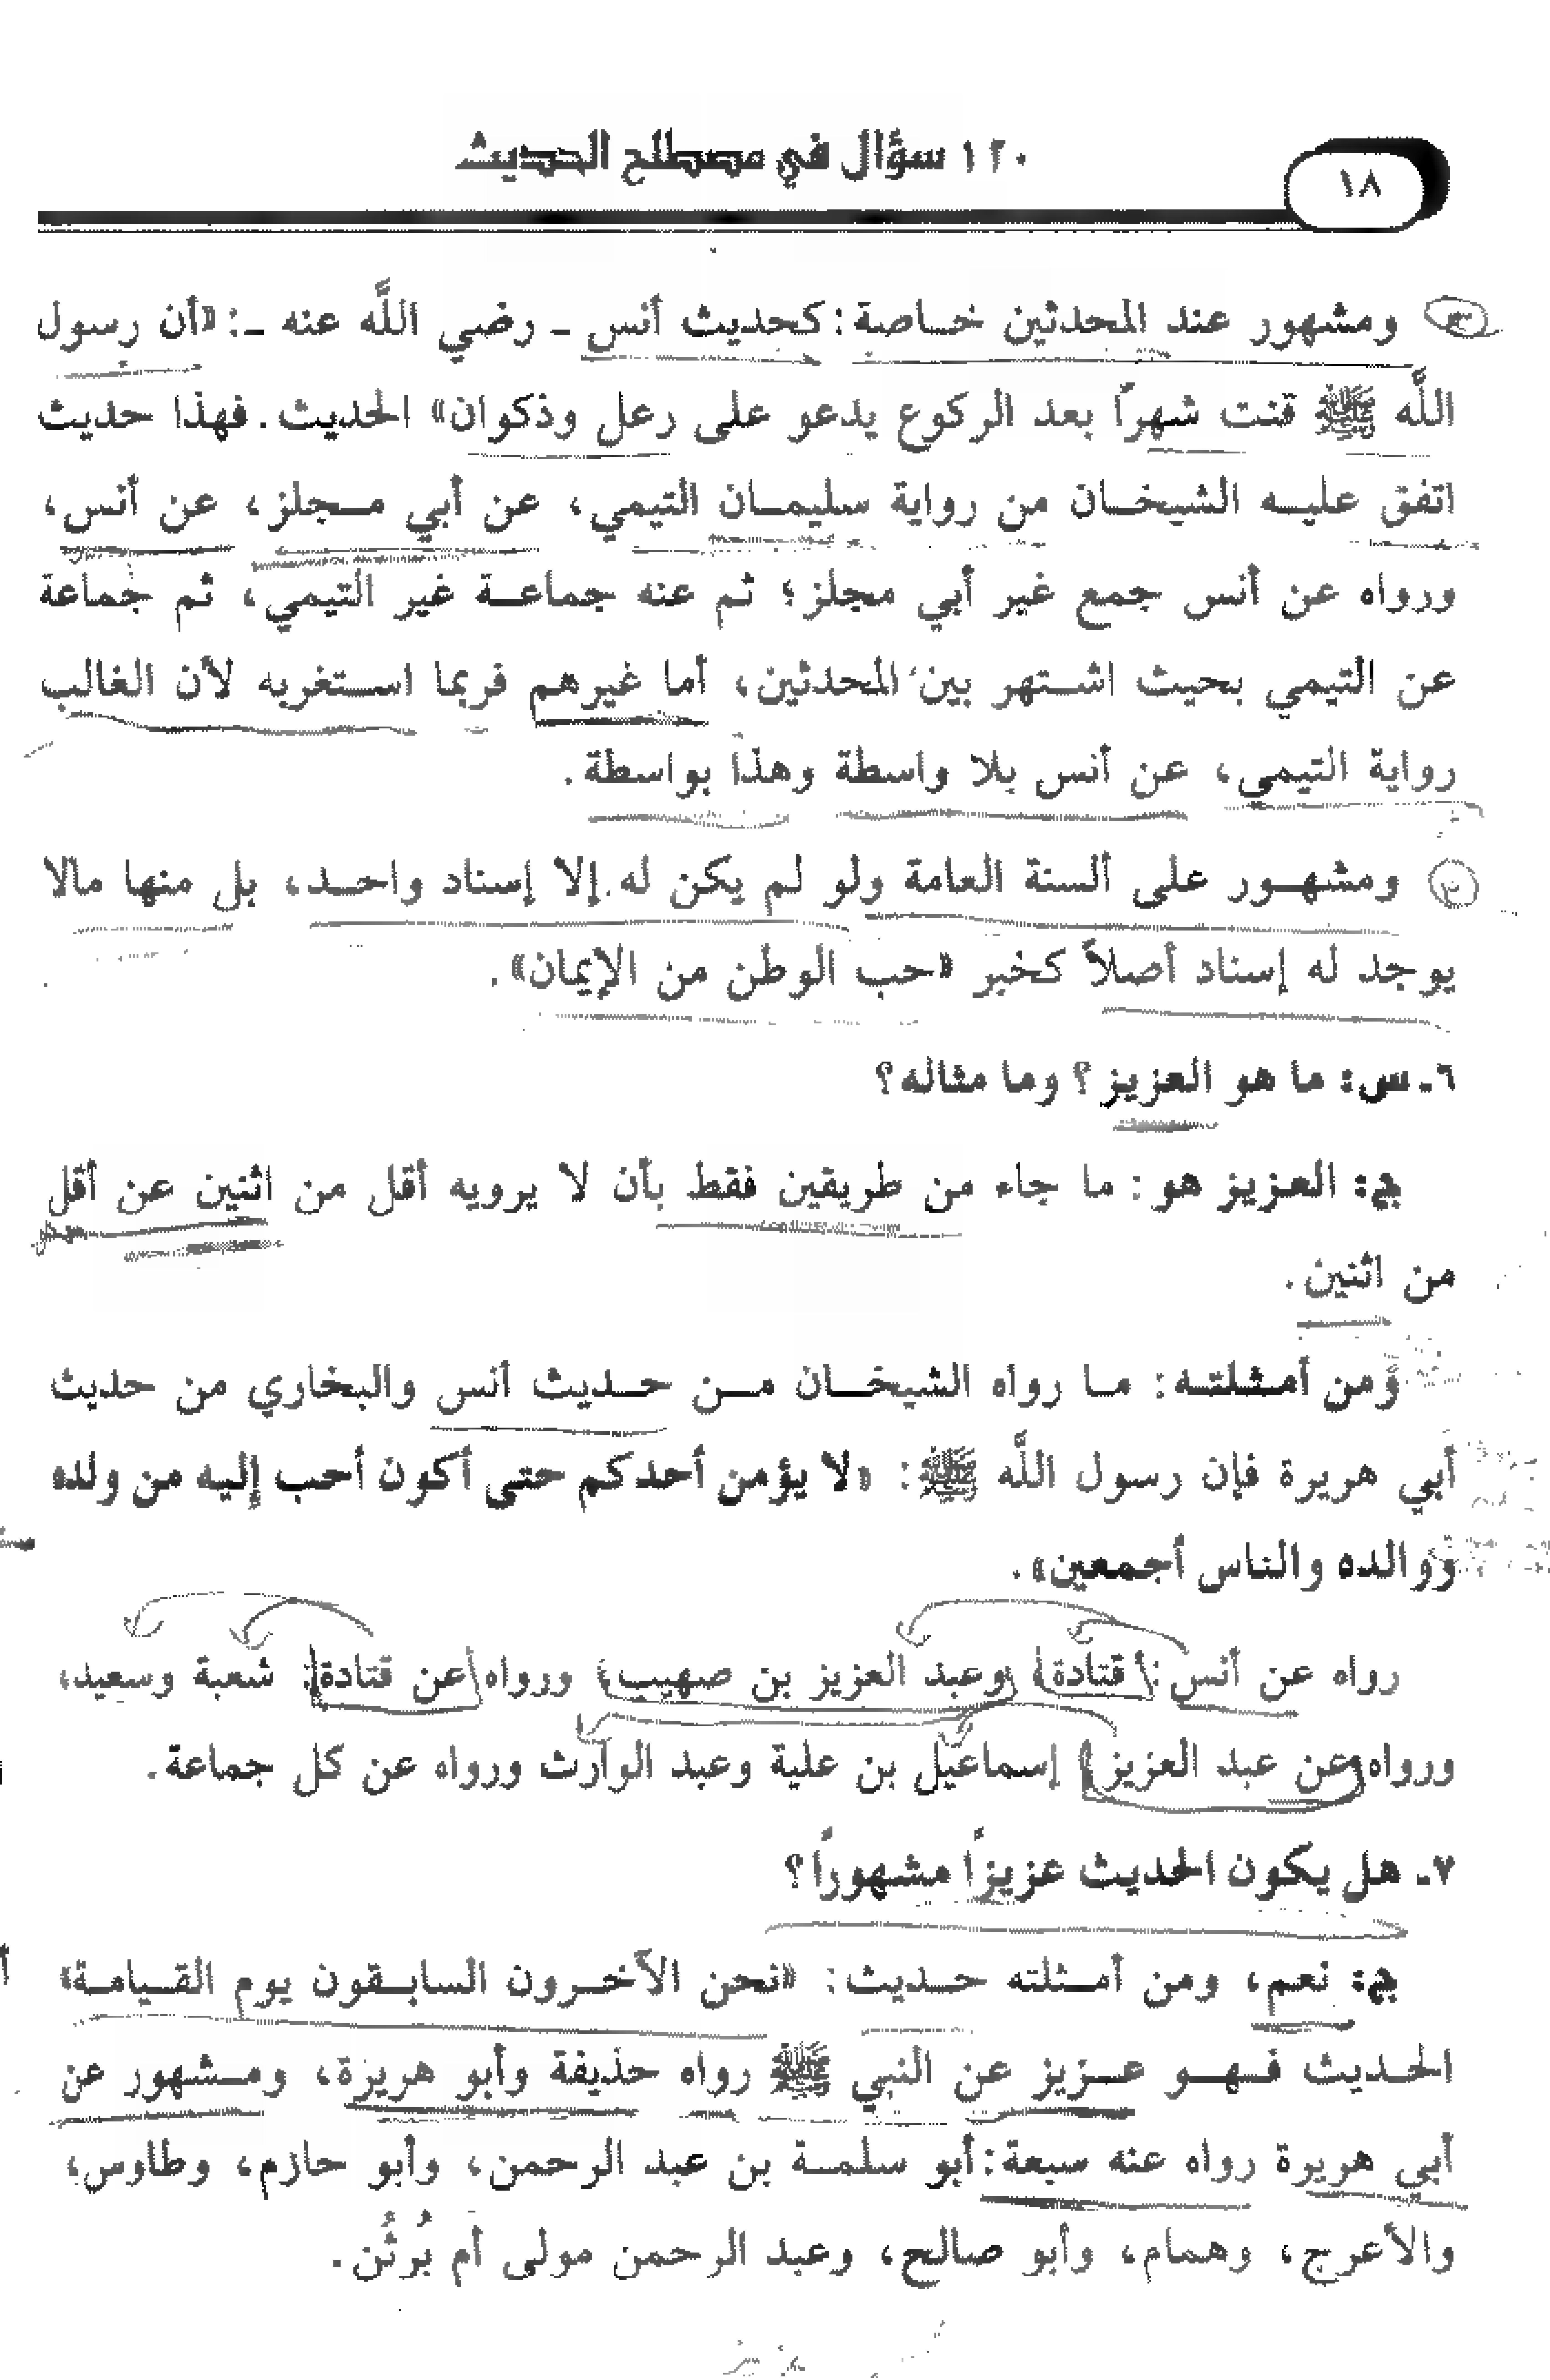 ١٢٠ سؤال في مصطلح الحديث
١٨
ومشهور عند المحدثين خاصة: كحديث أنس ـ رضي اللَّه عنه ـ: «أن رسول
اللَّه ﷺ قنت شهراً بعد الركوع يدعو على رعل وذكوان» الحديث. فهذا حديث
اتفق عليه الشيخان من رواية سليمان التيمي، عن أبي مجلز، عن أنس،
ورواه عن أنس جمع غير أبي مجلز؛ ثم عنه جماعة غير التيمي، ثم جماعة
عن التيمي بحيث اشتهر بين المحدثين، أما غيرهم فربما استغربه لأن الغالب
رواية التيمي، عن أنس بلا واسطة وهذا بواسطة.
ومشهور على ألسنة العامة ولو لم يكن له إلا إسناد واحد، بل منها مالا
يوجد له إسناد أصلاً كخبر «حب الوطن من الإيمان».
٦ـ س: ما هو العزيز؟ وما مثاله؟
ج: العزيز هو: ما جاء من طريقين فقط بأن لا يرويه أقل من اثنين عن أقل
من اثنين.
ومن أمثلته: ما رواه الشيخان من حديث أنس والبخاري من حديث
أبي هريرة فإن رسول اللَّه ﷺ: «لا يؤمن أحدكم حتى أكون أحب إليه من ولده
ووالده والناس أجمعين».
رواه عن أنس: قتادة، وعبد العزيز بن صهيب، ورواه عن قتادة: شعبة وسعيد،
ورواه عن عبد العزيز إسماعيل بن علية وعبد الوارث ورواه عن كل جماعة.
٧ـ هل يكون الحديث عزيزاً مشهوراً؟
ج: نعم، ومن أمثلته حديث: «نحن الآخرون السابقون يوم القيامة»
الحديث فهو عزيز عن النبي ﷺ رواه حذيفة وأبو هريرة، ومشهور عن
أبي هريرة رواه عنه سبعة: أبو سلمة بن عبد الرحمن، وأبو حازم، وطاوس،
والأعرج، وهمام، وأبو صالح، وعبد الرحمن مولى أم بُرثُن.